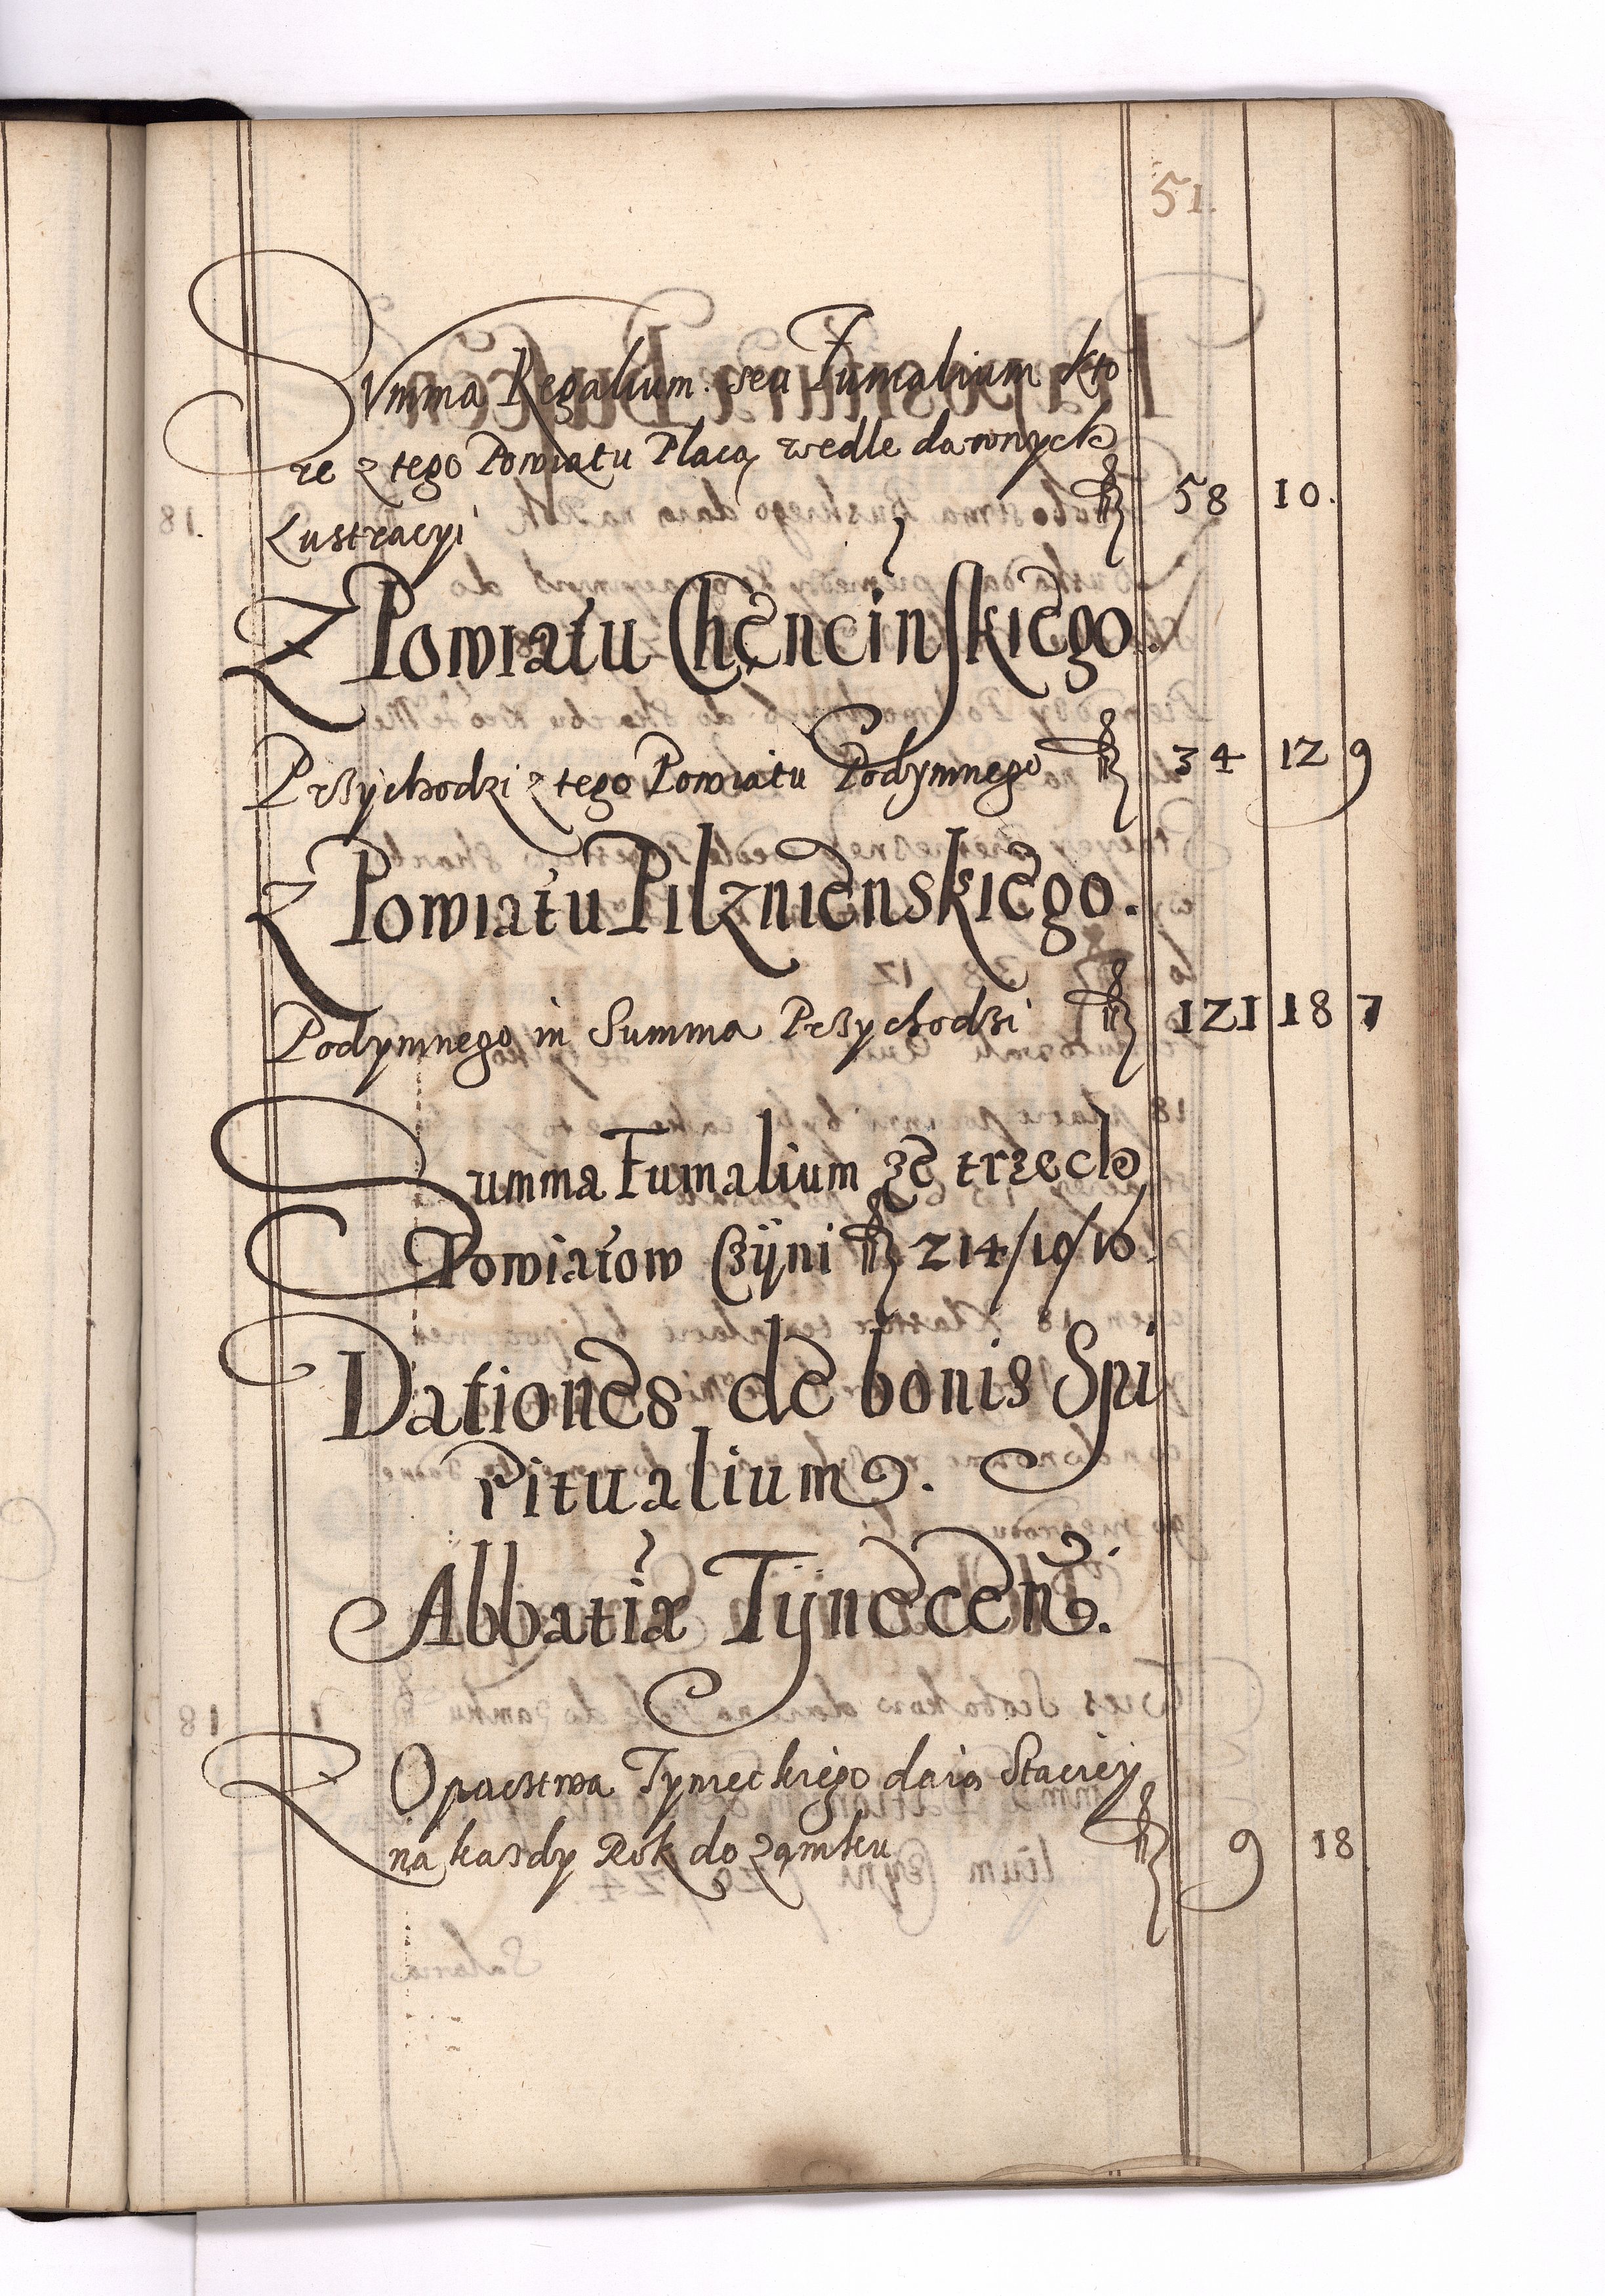 51.
Summa Regalium seu Fumalium kto
re z tego Powiatu Płacą wedle dawnych
Lustracyi fl 58 10.
Z Powiatu Chęncinskiego.
Przychodzi z tego Powiatu Podymnego fl 34 12 9
Z Powiatu Pilznienskiego.
Podymnego in Summa Przychodzi fl 121 18 7
Summa Fumalium ze trzech
Powiatow Czÿni fl 214/10/16
Dationes de bonis Spi
ritualium.
Abbatiæ Tÿnecen.
Z Opactwa Tynieckiego daią Staciey
na kasdy Rok do zamku fl 9 18